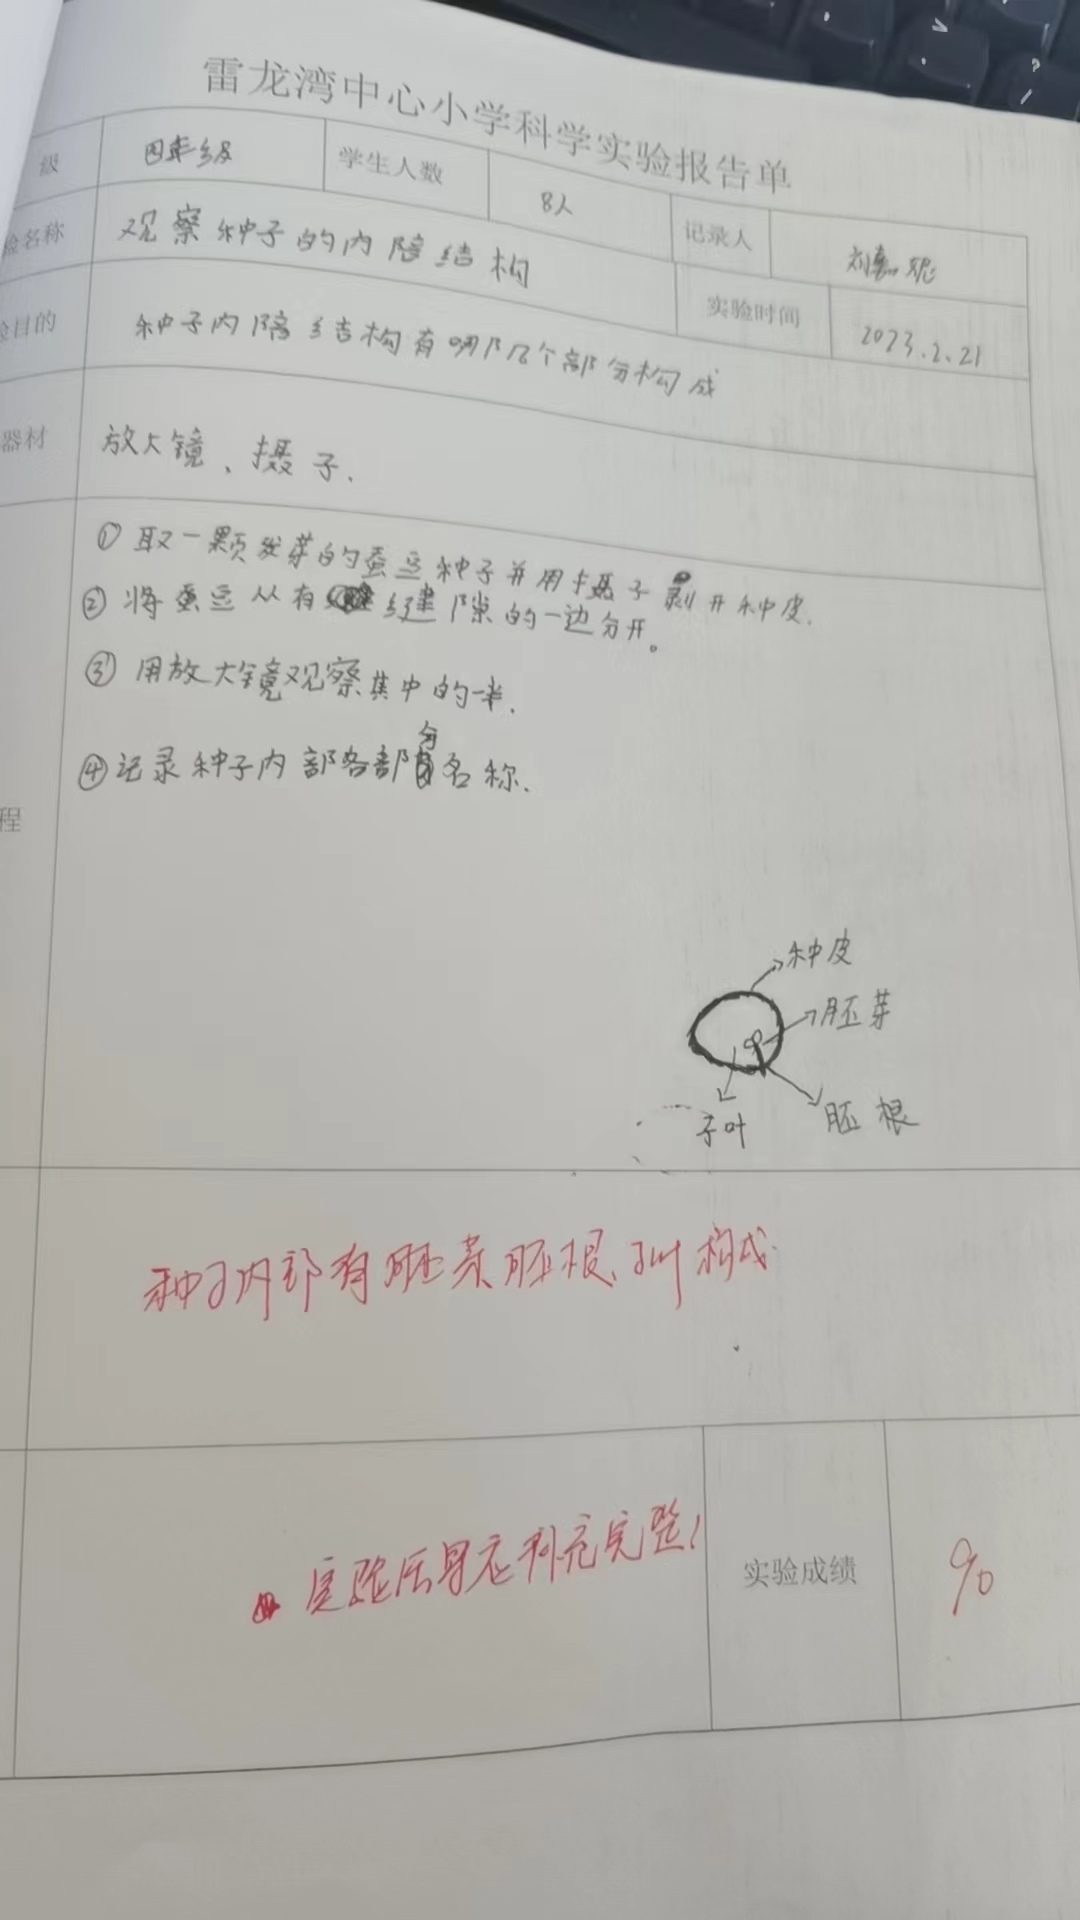 雷龙湾中心小学科学实验报告单
级 四年级 学生人数 8人 记录人
验名称 观察种子的内陪结构 实验时间 2023.2.21
验目的 种子内陪结构有哪几个部分构成
器材 放大镜、摄子.
① 取一颗发芽的蚕豆种子并用摄子剥开种皮.
② 将蚕豆从有缝隙的一边分开。
③ 用放大镜观察其中的一半.
④ 记录种子内部各部分名称.
程
种皮
胚芽
胚根
子叶
种子内部有胚芽胚根、子叶构成.
实验
完整!
实验成绩 90